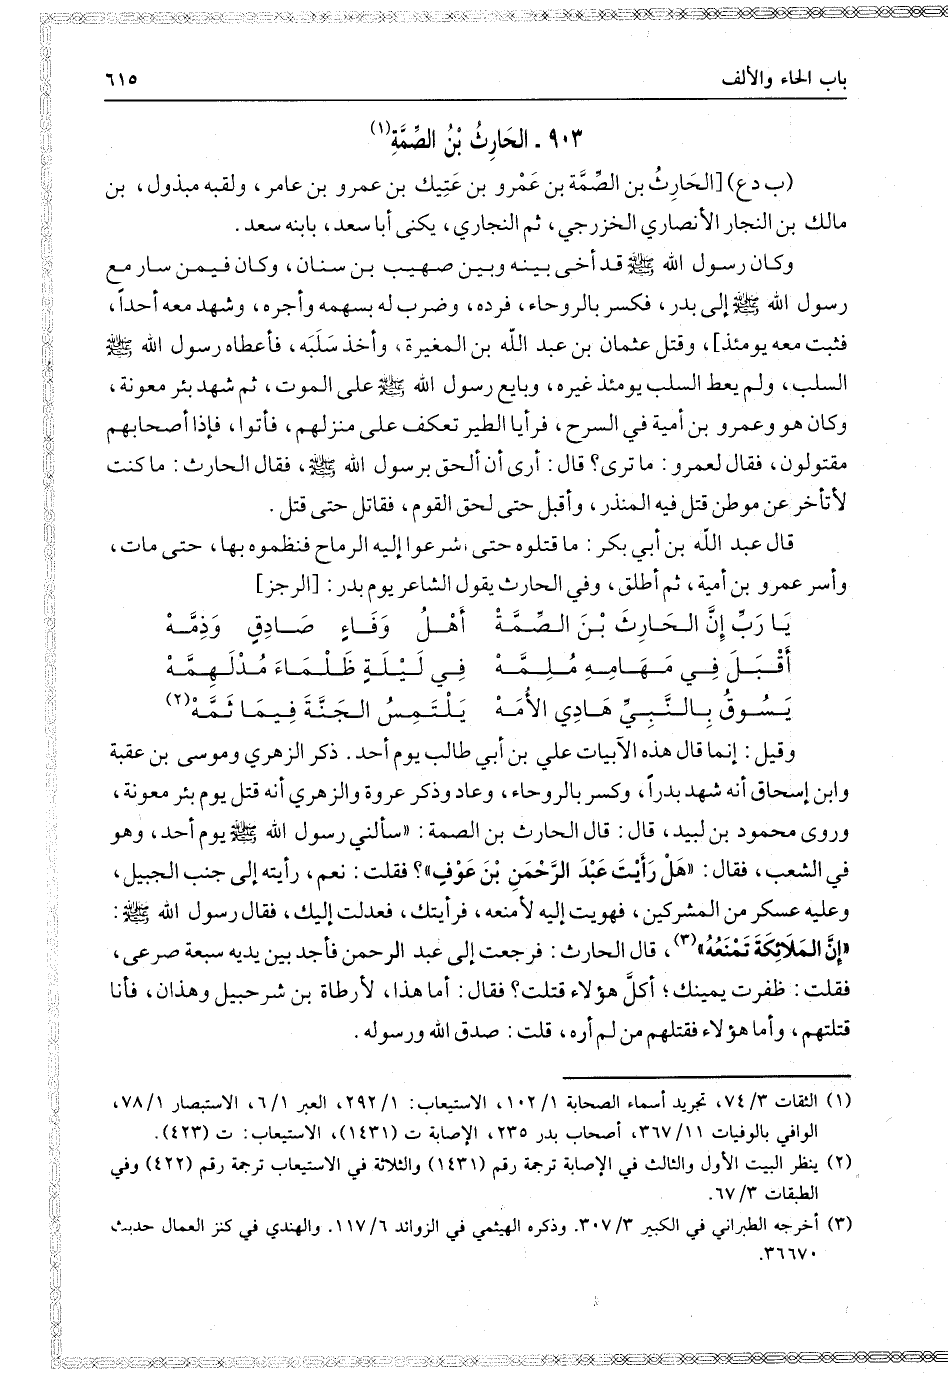 باب الحاء والألف
٦١٥
٩٠٣ - الحَارِثُ بْنُ الصِّمَّةِ(١)
(ب د ع) [الحَارِثُ بن الصِّمَّة بن عَمْرو بن عَتِيك بن عمرو بن عامر، ولقبه مبذول، بن
مالك بن النجار الأنصاري الخزرجي، ثم النجاري، يكنى أبا سعد، بابنه سعد.
وكان رسول الله ﷺ قد أخى بينه وبين صهيب بن سنان، وكان فيمن سار مع
رسول الله ﷺ إلى بدر، فكسر بالروحاء، فرده، وضرب له بسهمه وأجره، وشهد معه أحداً،
فثبت معه يومئذ]، وقتل عثمان بن عبد الله بن المغيرة، وأخذ سَلَبَه، فأعطاه رسول الله ﷺ
السلب، ولم يعط السلب يومئذ غيره، وبايع رسول الله ﷺ على الموت، ثم شهد بئر معونة،
وكان هو وعمرو بن أمية في السرح، فرأيا الطير تعكف على منزلهم، فأتوا، فإذا أصحابهم
مقتولون، فقال لعمرو: ما ترى؟ قال: أرى أن ألحق برسول الله ﷺ، فقال الحارث: ما كنت
لأتأخر عن موطن قتل فيه المنذر، وأقبل حتى لحق القوم، فقاتل حتى قتل.
قال عبد الله بن أبي بكر: ما قتلوه حتى شرعوا إليه الرماح فنظموه بها، حتى مات،
وأسر عمرو بن أمية، ثم أطلق، وفي الحارث يقول الشاعر يوم بدر: [الرجز]
يَا رَبِّ إِنَّ الحَارِثَ بْنَ الصِّمَّةْ أَهْلُ وَفَاءٍ صَادِقٍ وَذِمَّهْ
أَقْبَلَ فِي مَهَامِهٍ مُلِمَّهْ فِي لَيْلَةٍ ظَلْمَاءَ مُدْلَهِمَّهْ
يَسُوقُ بِالنَّبِيِّ هَادِي الأُمَهْ يَلْتَمِسُ الجَنَّةَ فِيمَا ثَمَّهْ(٢)
وقيل: إنما قال هذه الأبيات علي بن أبي طالب يوم أحد. ذكر الزهري وموسى بن عقبة
وابن إسحاق أنه شهد بدراً، وكسر بالروحاء، وعاد وذكر عروة والزهري أنه قتل يوم بئر معونة،
وروى محمود بن لبيد، قال: قال الحارث بن الصمة: «سألني رسول الله ﷺ يوم أحد، وهو
في الشعب، فقال: «هَلْ رَأَيْتَ عَبْدَ الرَّحْمَنِ بْنَ عَوْفٍ»؟ فقلت: نعم، رأيته إلى جنب الجبيل،
وعليه عسكر من المشركين، فهويت إليه لأمنعه، فرأيتك، فعدلت إليك، فقال رسول الله ﷺ:
«إِنَّ المَلَائِكَةَ تَمْنَعُهُ»(٣)، قال الحارث: فرجعت إلى عبد الرحمن فأجد بين يديه سبعة صرعى،
فقلت: ظفرت يمينك؛ أكلَّ هؤلاء قتلت؟ فقال: أما هذا، لأرطاة بن شرحبيل وهذان، فأنا
قتلتهم، وأما هؤلاء فقتلهم من لم أره، قلت: صدق الله ورسوله.
(١) الثقات ٣/ ٧٤، تجريد أسماء الصحابة ١/ ١٠٢، الاستيعاب: ١/ ٢٩٢، العبر ١/ ٦، الاستبصار ١/ ٧٨،
الوافي بالوفيات ١١/ ٣٦٧، أصحاب بدر ٢٣٥، الإصابة ت (١٤٣١)، الاستيعاب: ت (٤٢٣).
(٢) ينظر البيت الأول والثالث في الإصابة ترجمة رقم (١٤٣١) والثلاثة في الاستيعاب ترجمة رقم (٤٢٢) وفي
الطبقات ٣/ ٦٧.
(٣) أخرجه الطبراني في الكبير ٣/ ٣٠٧. وذكره الهيثمي في الزوائد ٦/ ١١٧. والهندي في كنز العمال حديث
٣٦٦٧٠.